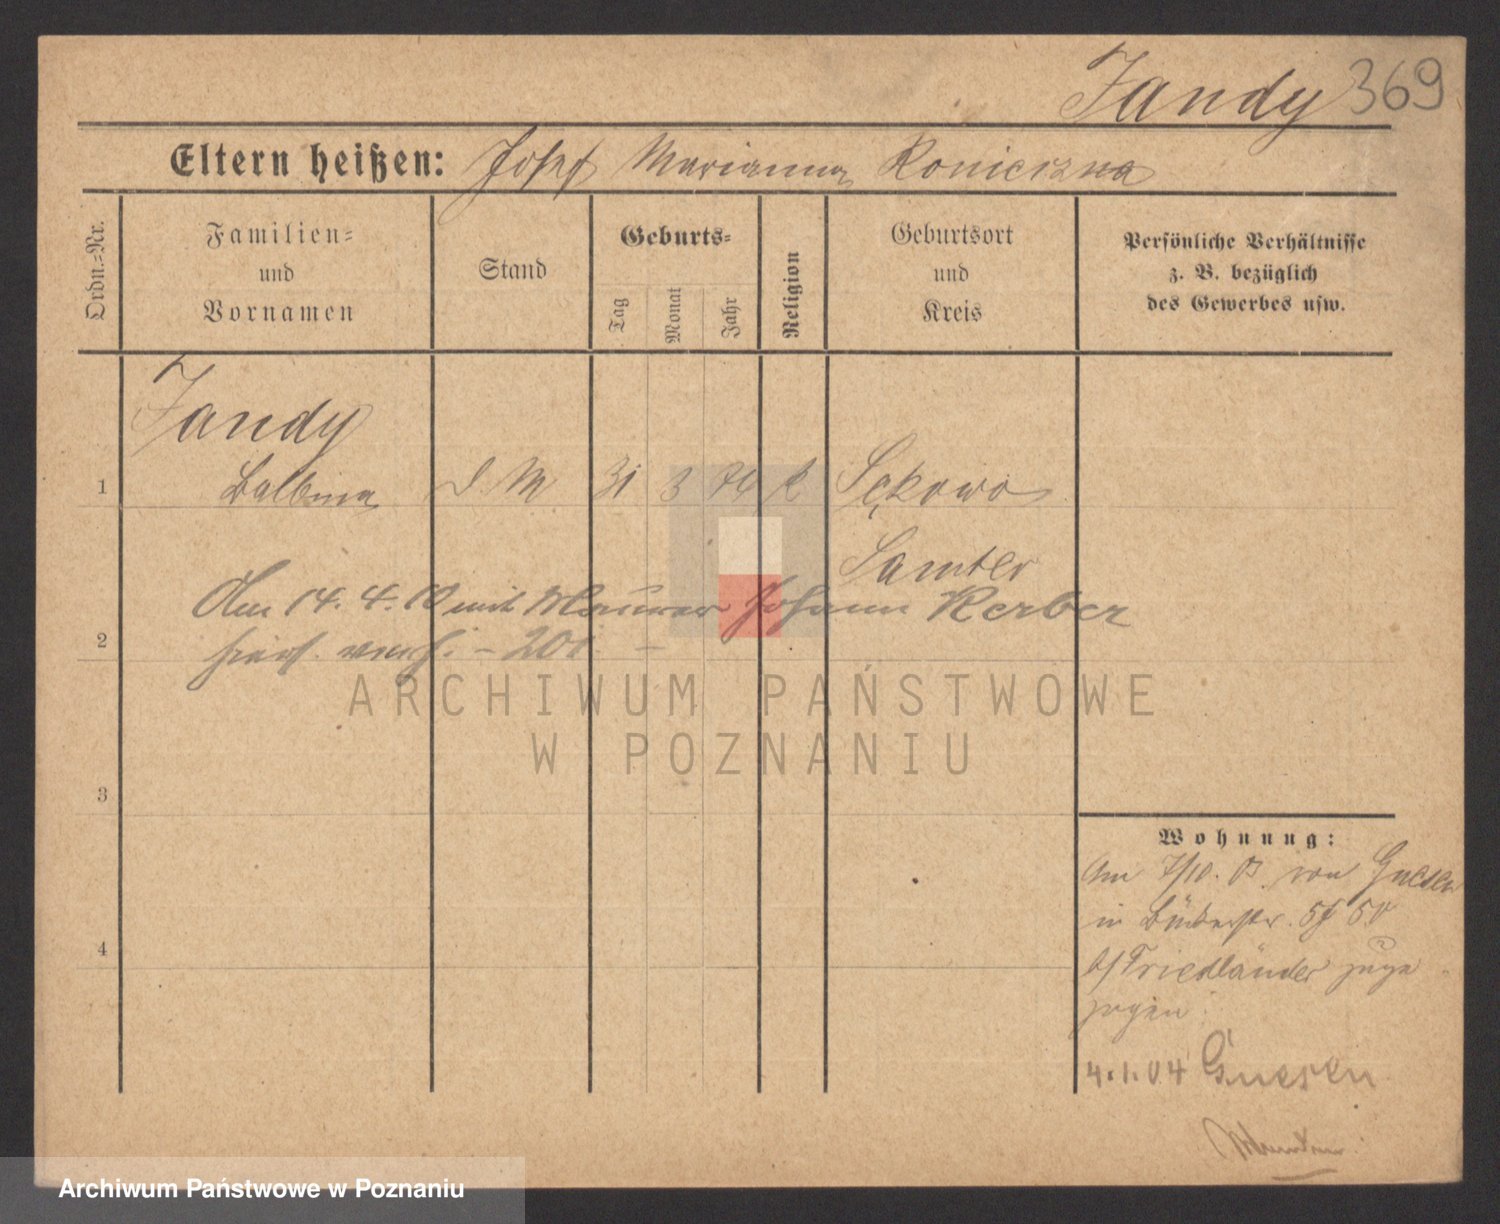 Jandy 369
Eltern heißen: Josef Marianna Konieczna
Ordn.=Nr.
Familien=
und
Vornamen
Stand
Geburts=
Tag
Monat
Jahr
Religion
Geburtsort
und
Kreis
Persönliche Verhältnisse
z. B. bezüglich
des Gewerbes usw.
Jandy
1 Balbina d. M 31 3 74 k Sękowo
Samter
Am 14. 4. 10 mit Maurer Johann Kerber
2 hier verh. – 201. –
ARCHIWUM PAŃSTWOWE
W POZNANIU
3
Wohnung:
Am 7/10. 03. von Gnesen
in Bäckerstr.
4 b/ Friedländer zuge
zogen
4.1.04 Gnesen
Archiwum Państwowe w Poznaniu